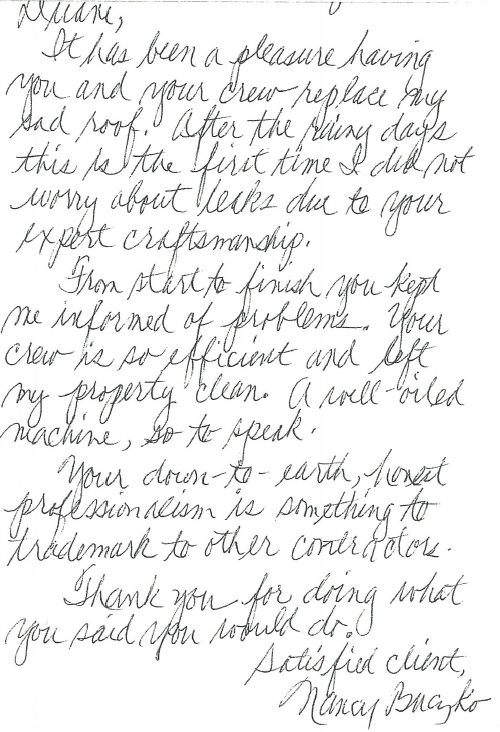 Duane,
It has been a pleasure having
you and your crew replace my
sad roof. After the rainy days
this is the first time I did not
worry about leaks due to your
expert craftsmanship.
From start to finish you kept
me informed of problems. Your
crew is so efficient and left
my property clean. A well-oiled
machine, so to speak.
Your down-to-earth, honest
professionalism is something to
trademark to other contractors.
Thank you for doing what
you said you would do.
Satisfied client,
Nancy Buczko